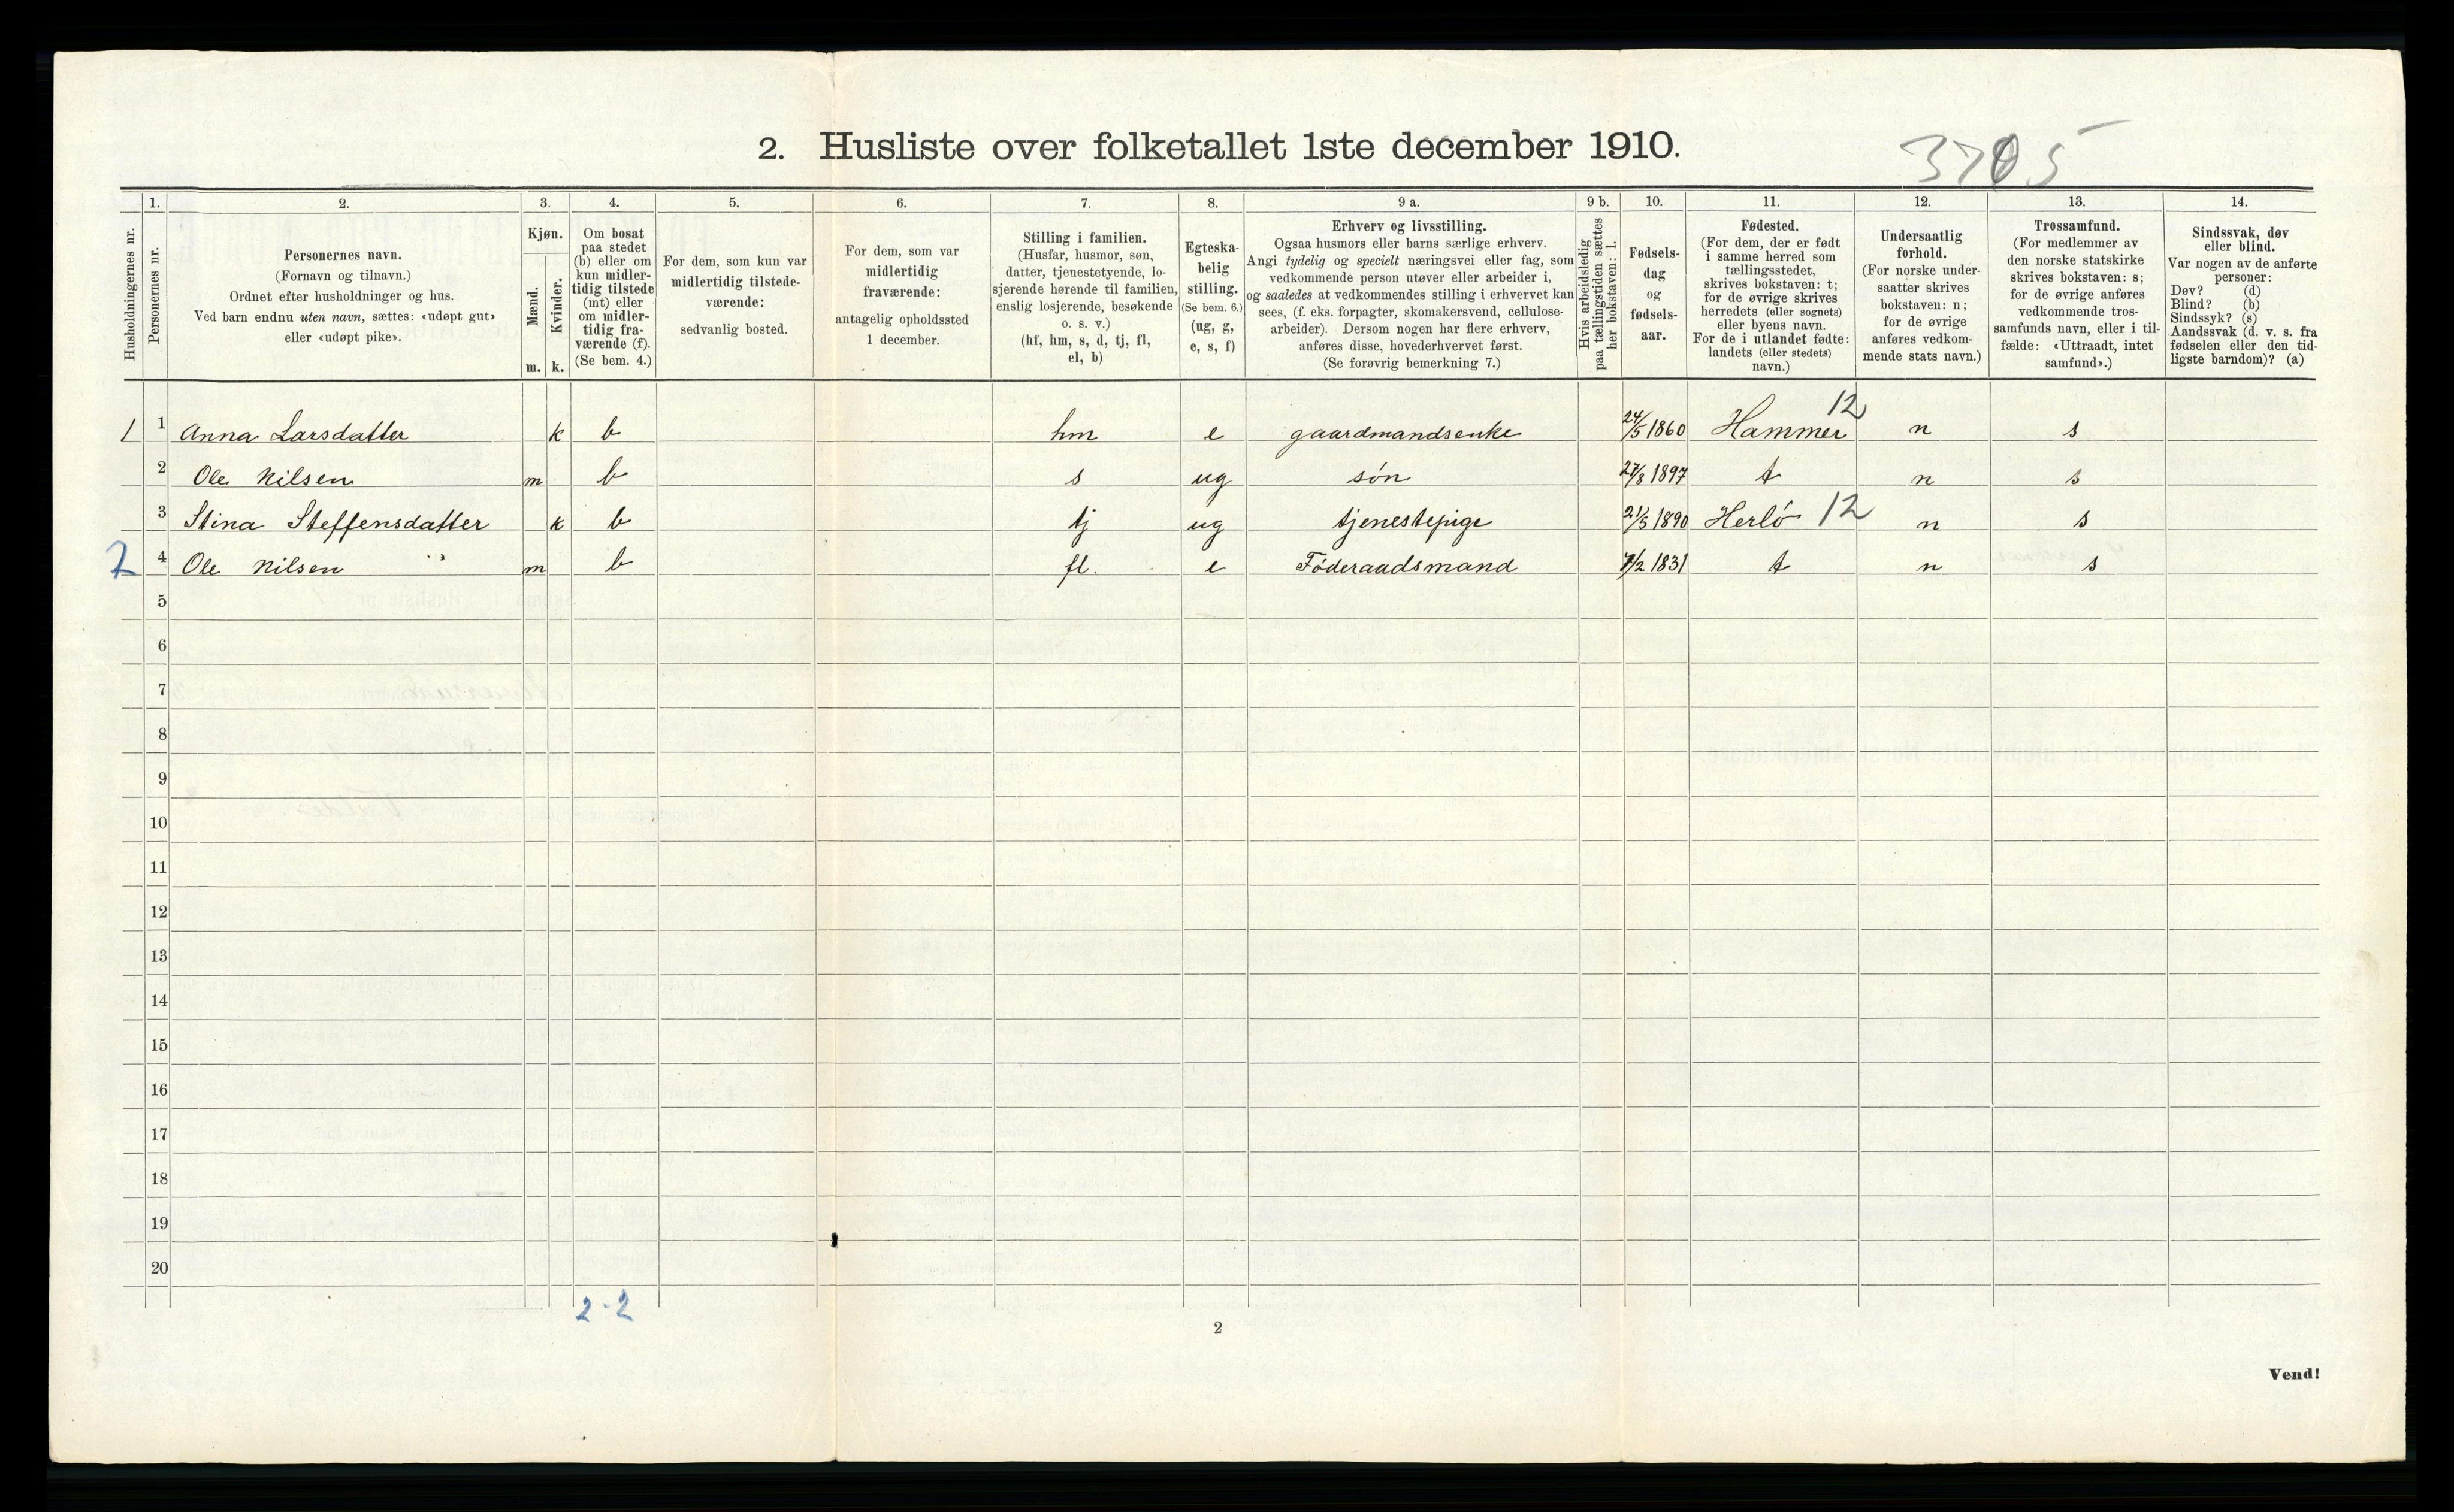 2. Husliste over folketallet 1ste december 1910.
3705
Husholdningernes nr.
1. Personernes nr.
2. Personernes navn.
(Fornavn og tilnavn.)
Ordnet efter husholdninger og hus.
Ved barn endnu uten navn, sættes: «udøpt gut»
eller «udøpt pike».
3. Kjøn.
Mænd. m.
Kvinder. k.
4. Om bosat
paa stedet
(b) eller om
kun midler-
tidig tilstede
(mt) eller
om midler-
tidig fra-
værende (f).
(Se bem. 4.)
5. For dem, som kun var
midlertidig tilstede-
værende:
sedvanlig bosted.
6. For dem, som var
midlertidig
fraværende:
antagelig opholdssted
1 december.
7. Stilling i familien.
(Husfar, husmor, søn,
datter, tjenestetyende, lo-
sjerende hørende til familien,
enslig losjerende, besøkende
o. s. v.)
(hf, hm, s, d, tj, fl,
el, b)
8. Egteska-
belig
stilling.
(Se bem. 6.)
(ug, g,
e, s, f)
9 a. Erhverv og livsstilling.
Ogsaa husmors eller barns særlige erhverv.
Angi tydelig og specielt næringsvei eller fag, som
vedkommende person utøver eller arbeider i,
og saaledes at vedkommendes stilling i erhvervet kan
sees, (f. eks. forpagter, skomakersvend, cellulose-
arbeider). Dersom nogen har flere erhverv,
anføres disse, hovederhvervet først.
(Se forøvrig bemerkning 7.)
9 b. Hvis arbeidsledig
paa tællingstiden sættes
her bokstaven: l.
10. Fødsels-
dag
og
fødsels-
aar.
11. Fødested.
(For dem, der er født
i samme herred som
tællingsstedet,
skrives bokstaven: t;
for de øvrige skrives
herredets (eller sognets)
eller byens navn.
For de i utlandet fødte:
landets (eller stedets)
navn.)
12. Undersaatlig
forhold.
(For norske under-
saatter skrives
bokstaven: n;
for de øvrige
anføres vedkom-
mende stats navn.)
13. Trossamfund.
(For medlemmer av
den norske statskirke
skrives bokstaven: s;
for de øvrige anføres
vedkommende tros-
samfunds navn, eller i til-
fælde: «Uttraadt, intet
samfund».)
14. Sindssvak, døv
eller blind.
Var nogen av de anførte
personer:
Døv? (d)
Blind? (b)
Sindssyk? (s)
Aandssvak (d. v. s. fra
fødselen eller den tid-
ligste barndom)? (a)
1 1 Anna Larsdatter k b hm e gaardmandsenke 24/5 1860 Hammer 12 n s
2 Ole Nilsen m b s ug søn 27/8 1897 t n s
3 Stina Steffensdatter k b tj ug tjenestepige 21/5 1890 Herlö 12 n s
2 4 Ole Nilsen m b fl. e Föderaadsmand 7/2 1831 t n s
5
6
7
8
9
10
11
12
13
14
15
16
17
18
19
20
2-2
2
Vend!